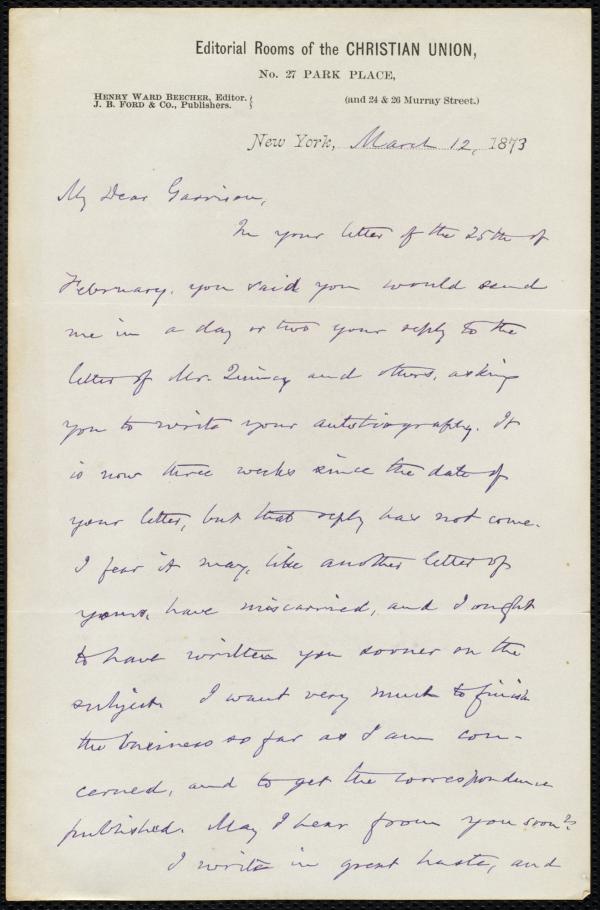 Editorial Rooms of the CHRISTIAN UNION,
No. 27 PARK PLACE,
HENRY WARD BEECHER, Editor.
J. B. FORD & CO., Publishers.
(and 24 & 26 Murray Street.)
New York, March 12, 1873
My Dear Garrison,
In your letter of the 25th of
February, you said you would send
me in a day or two your reply to the
letter of Mr. Quincy and others, asking
you to write your autobiography. It
is now three weeks since the date of
your letter, but that reply has not come.
I fear it may, like another letter of
yours, have miscarried, and I ought
to have written you sooner on the
subject. I want very much to finish
the business so far as I am con-
cerned, and to get the correspondence
published. May I hear from you soon?
I write in great haste, and